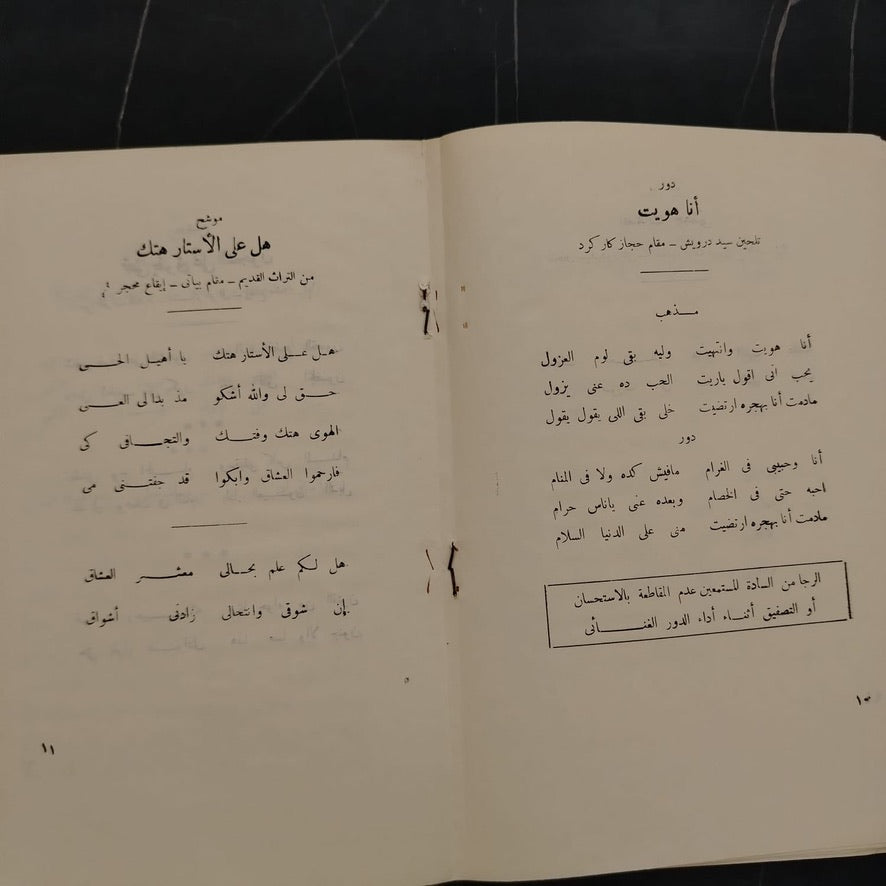 دور
أنا هويت
تلحين سيد درويش – مقام حجاز كار كرد
مـذهب
أنا هويت وانتهيت وليه بقى لوم العزول
يحب انى اقول ياريت الحب ده عنى يزول
مادمت أنا بهجره ارتضيت خلى بقى اللى يقول يقول
دور
أنا وحبيبى فى الغرام مافيش كده ولا فى المنام
احبه حتى فى الخصام وبعده عنى ياناس حرام
مادمت أنا بهجره ارتضيت منى على الدنيا السلام
الرجا من السادة المستمعين عدم المقاطعة بالاستحسان
أو التصفيق أثناء أداء الدور الغنائى
١٠
موشح
هل على الأستار هتك
من التراث القديم – مقام بياتى – إيقاع محجر
هل على الأستار هتك يا أهيل الحى
حق لى والله أشكو مذ بدا لى العى
الهوى هتك وفتك والتجافى كى
فارحموا العشاق وابكوا قد جفتنى مى
هل لكم علم بحالى معشر العشاق
إن شوقى وانتحالى زادنى أشواق
١١